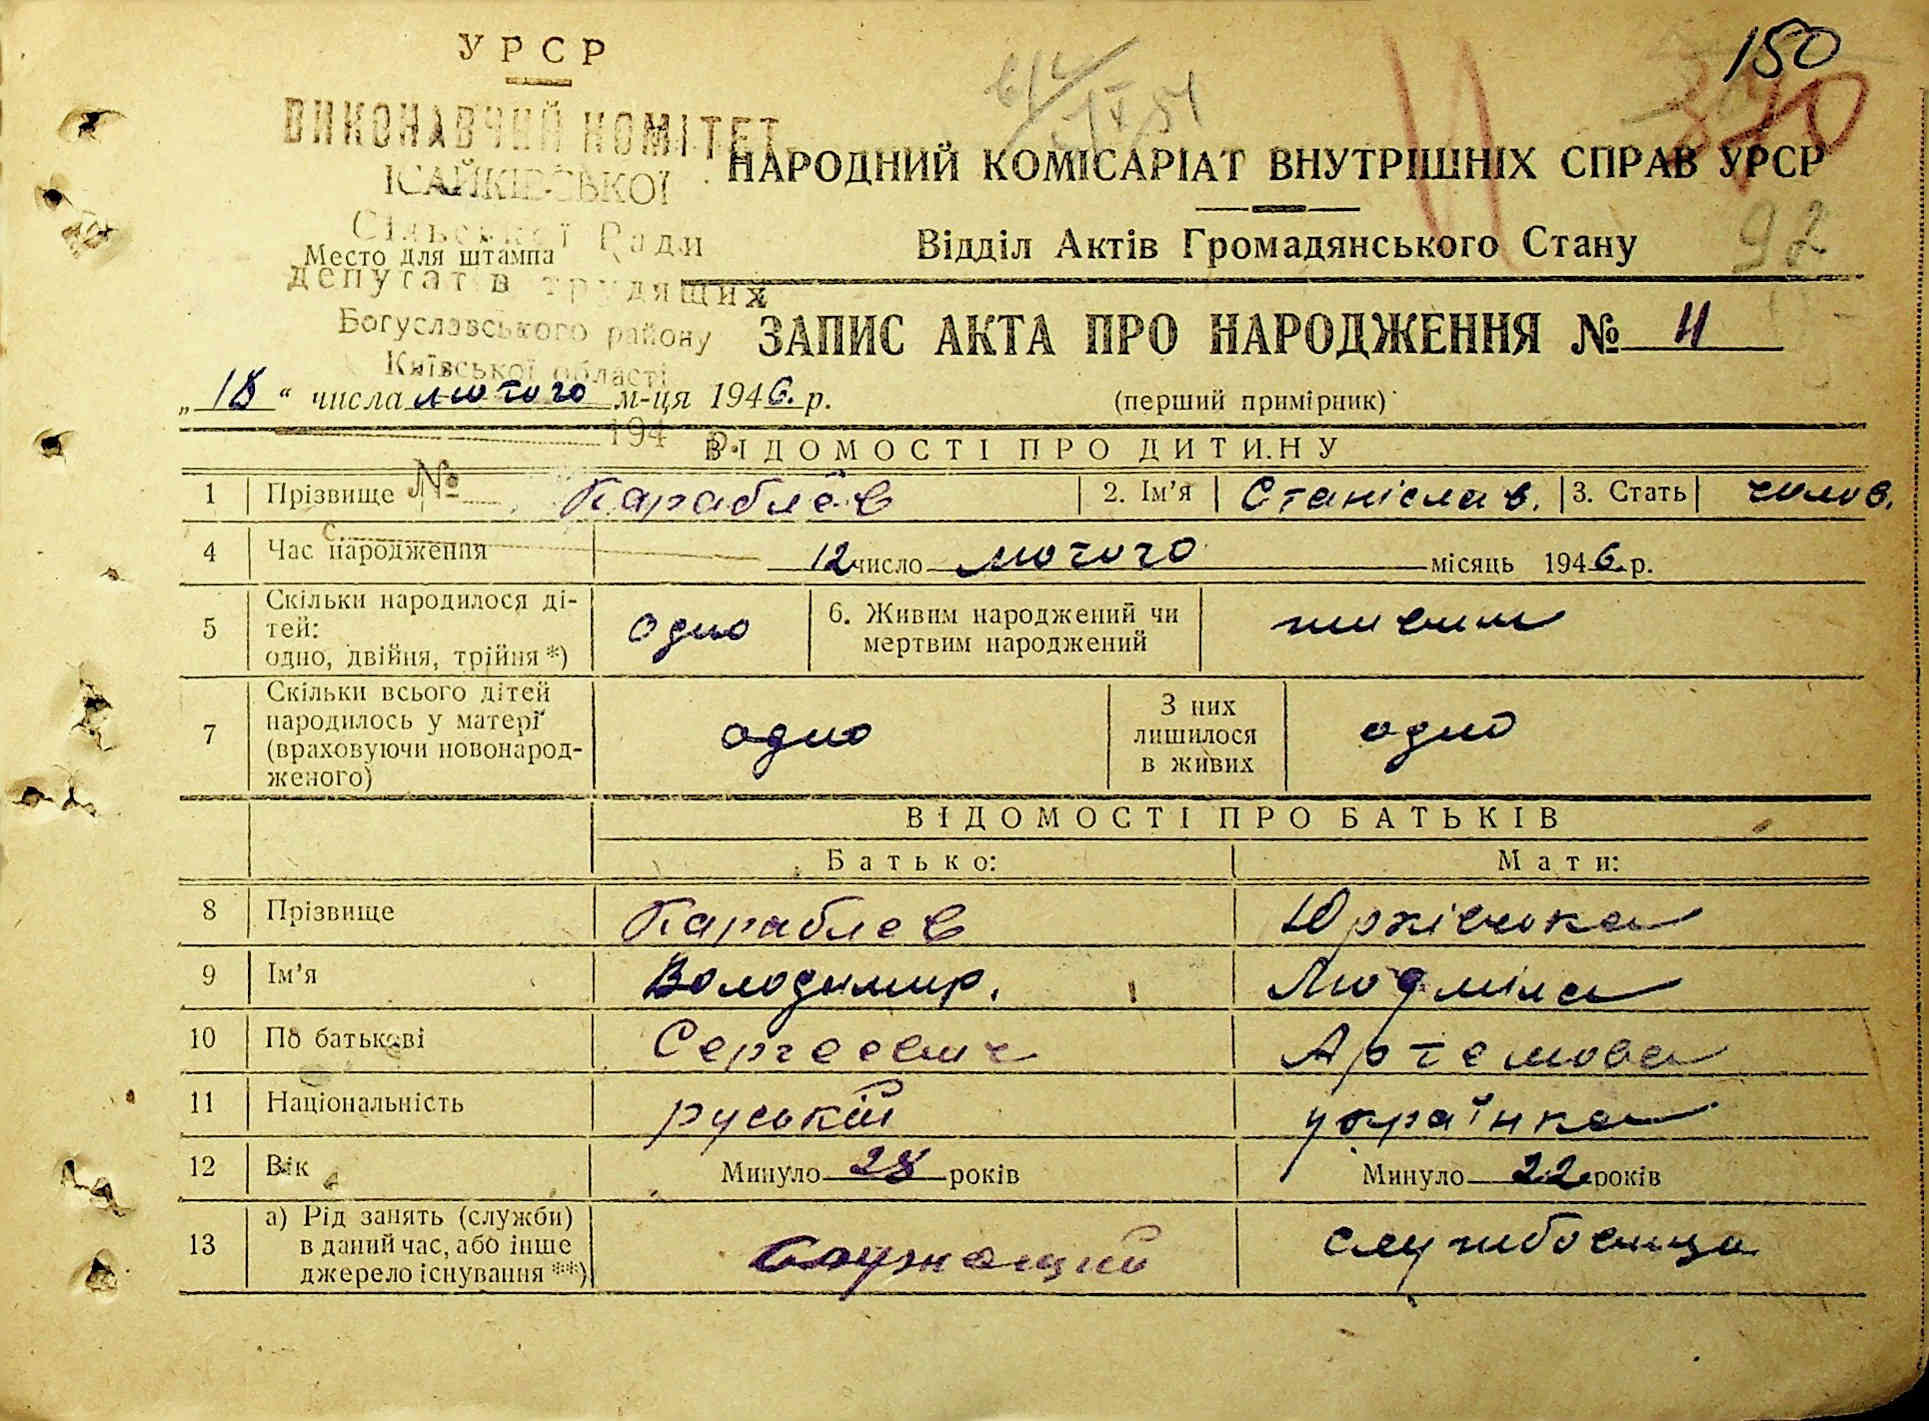 УРСР
150
ВИКОНАВЧИЙ КОМІТЕТ
ІСАЙКІВСЬКОЇ
НАРОДНИЙ КОМІСАРІАТ ВНУТРІШНІХ СПРАВ УРСР
Сільської Ради
Место для штампа
Відділ Актів Громадянського Стану
92
депутатів трудящих
Богуславського району
ЗАПИС АКТА ПРО НАРОДЖЕННЯ № 11
Київської області
„18“ числа лютого м-ця 1946. р.
(перший примірник)
194 р.
ВІДОМОСТІ ПРО ДИТИНУ
1 Прізвище № Караблев 2. Ім’я Станіслав. 3. Стать чолов.
4 Час народження 12 число лютого місяць 1946.р.
5 Скільки народилося ді-
тей:
одно, двійня, трійня*) одно 6. Живим народжений чи
мертвим народжений живим
7 Скільки всього дітей
народилось у матері
(враховуючи новонарод-
женого) одно З них
лишилося
в живих одно
ВІДОМОСТІ ПРО БАТЬКІВ
Батько: Мати:
8 Прізвище Караблев
9 Ім’я Володимир. Людміла
10 По батькові Сергеевич Артемова
11 Національність руський українка
12 Вік Минуло 28 років Минуло 22 років
13 а) Рід занять (служби)
в даний час, або інше
джерело існування**) служащий службовица